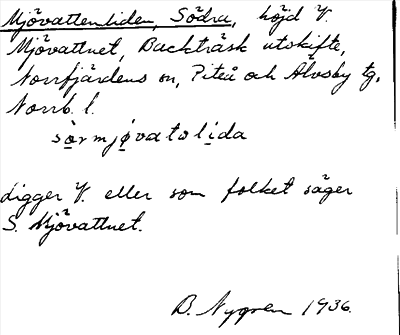 Mjövattenliden, Södra, höjd V.
Mjövattnet, Backträsk utskifte,
Norrfjärdens sn, Piteå och Älvsby tg,
Norrb. l.
sörmjøvatolida
ligger V. eller som folket säger
S. Mjövattnet.
D. Nygren 1936.